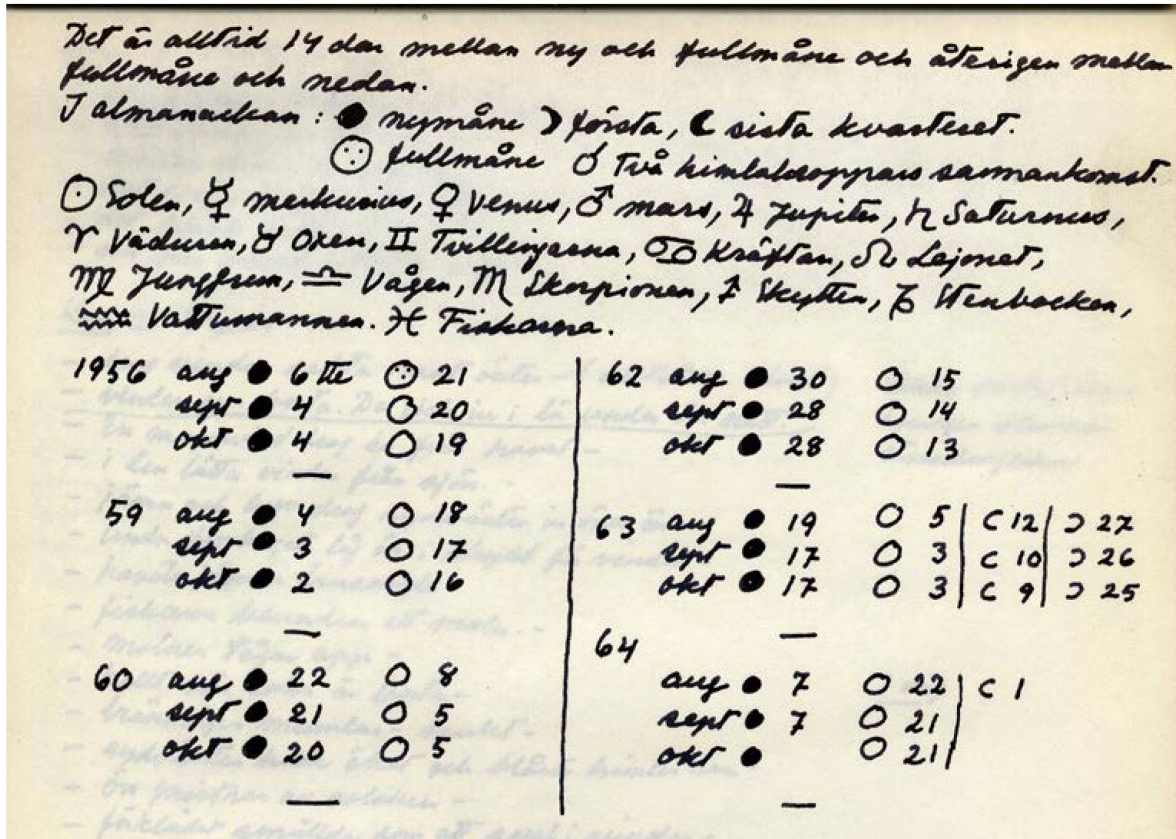 Det är alltid 14 dar mellan ny och fullmåne och återigen mellan
fullmåne och nedan.
I almanackan: ● nymåne ☽ första, ☾ sista kvarteret.
fullmåne ☌ Två himlakroppars sammankomst.
☉ Solen, ☿ merkurius, ♀ Venus, ♂ mars, ♃ Jupiter, ♄ Saturnus,
♈ Väduren, ♉ Oxen, ♊ Tvillingarna, ♋ Kräftan, ♌ Lejonet,
♍ Jungfrun, ♎ Vågen, ♏ Skorpionen, ♐ Skytten, ♑ Stenbocken,
♒ Vattumannen. ♓ Fiskarna.
1956 aug ● 6 tte ○ 21
sept ● 4 ○ 20
okt ● 4 ○ 19
—
59 aug ● 4 ○ 18
sept ● 3 ○ 17
okt ● 2 ○ 16
—
60 aug ● 22 ○ 8
sept ● 21 ○ 5
okt ● 20 ○ 5
—
62 aug ● 30 ○ 15
sept ● 28 ○ 14
okt ● 28 ○ 13
—
63 aug ● 19 ○ 5 | ☾ 12 | ☽ 27
sept ● 17 ○ 3 | ☾ 10 | ☽ 26
okt ● 17 ○ 3 | ☾ 9 | ☽ 25
—
64
aug ● 7 ○ 22 | ☾ 1
sept ● 7 ○ 21
okt ● ○ 21
—